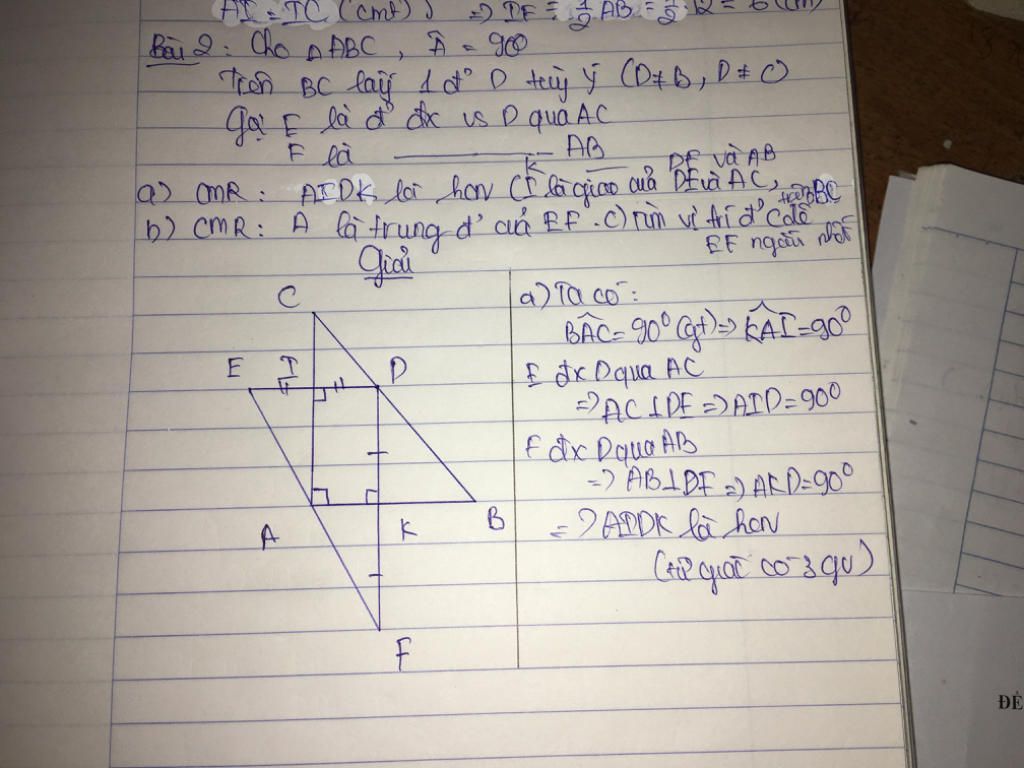 AI = IC (cmt) ⇒ IF = 1/2 AB = 1/2 . 12 = 6 (cm)
Bài 2: Cho △ABC, Â = 90°
Trên BC lấy 1 đ' D tùy ý (D≠B, D≠C)
Gọi E là đ' đx vs D qua AC
F là ———— AB
K DF và AB
a) CMR: AIDK là hcn (I là giao của DE và AC,
trên BC
b) CMR: A là trung đ' của EF. c) Tìm vị trí đ' để
EF ngắn nhất
Giải
C
E I D
A K B
F
a) Ta có:
BÂC = 90° (gt) ⇒ KÂI = 90°
E đx D qua AC
⇒ AC⊥DE ⇒ AID = 90°
F đx D qua AB
⇒ AB⊥DF ⇒ AKD = 90°
⇒ AIDK là hcn
(tứ giác có 3 gv)
ĐỀ